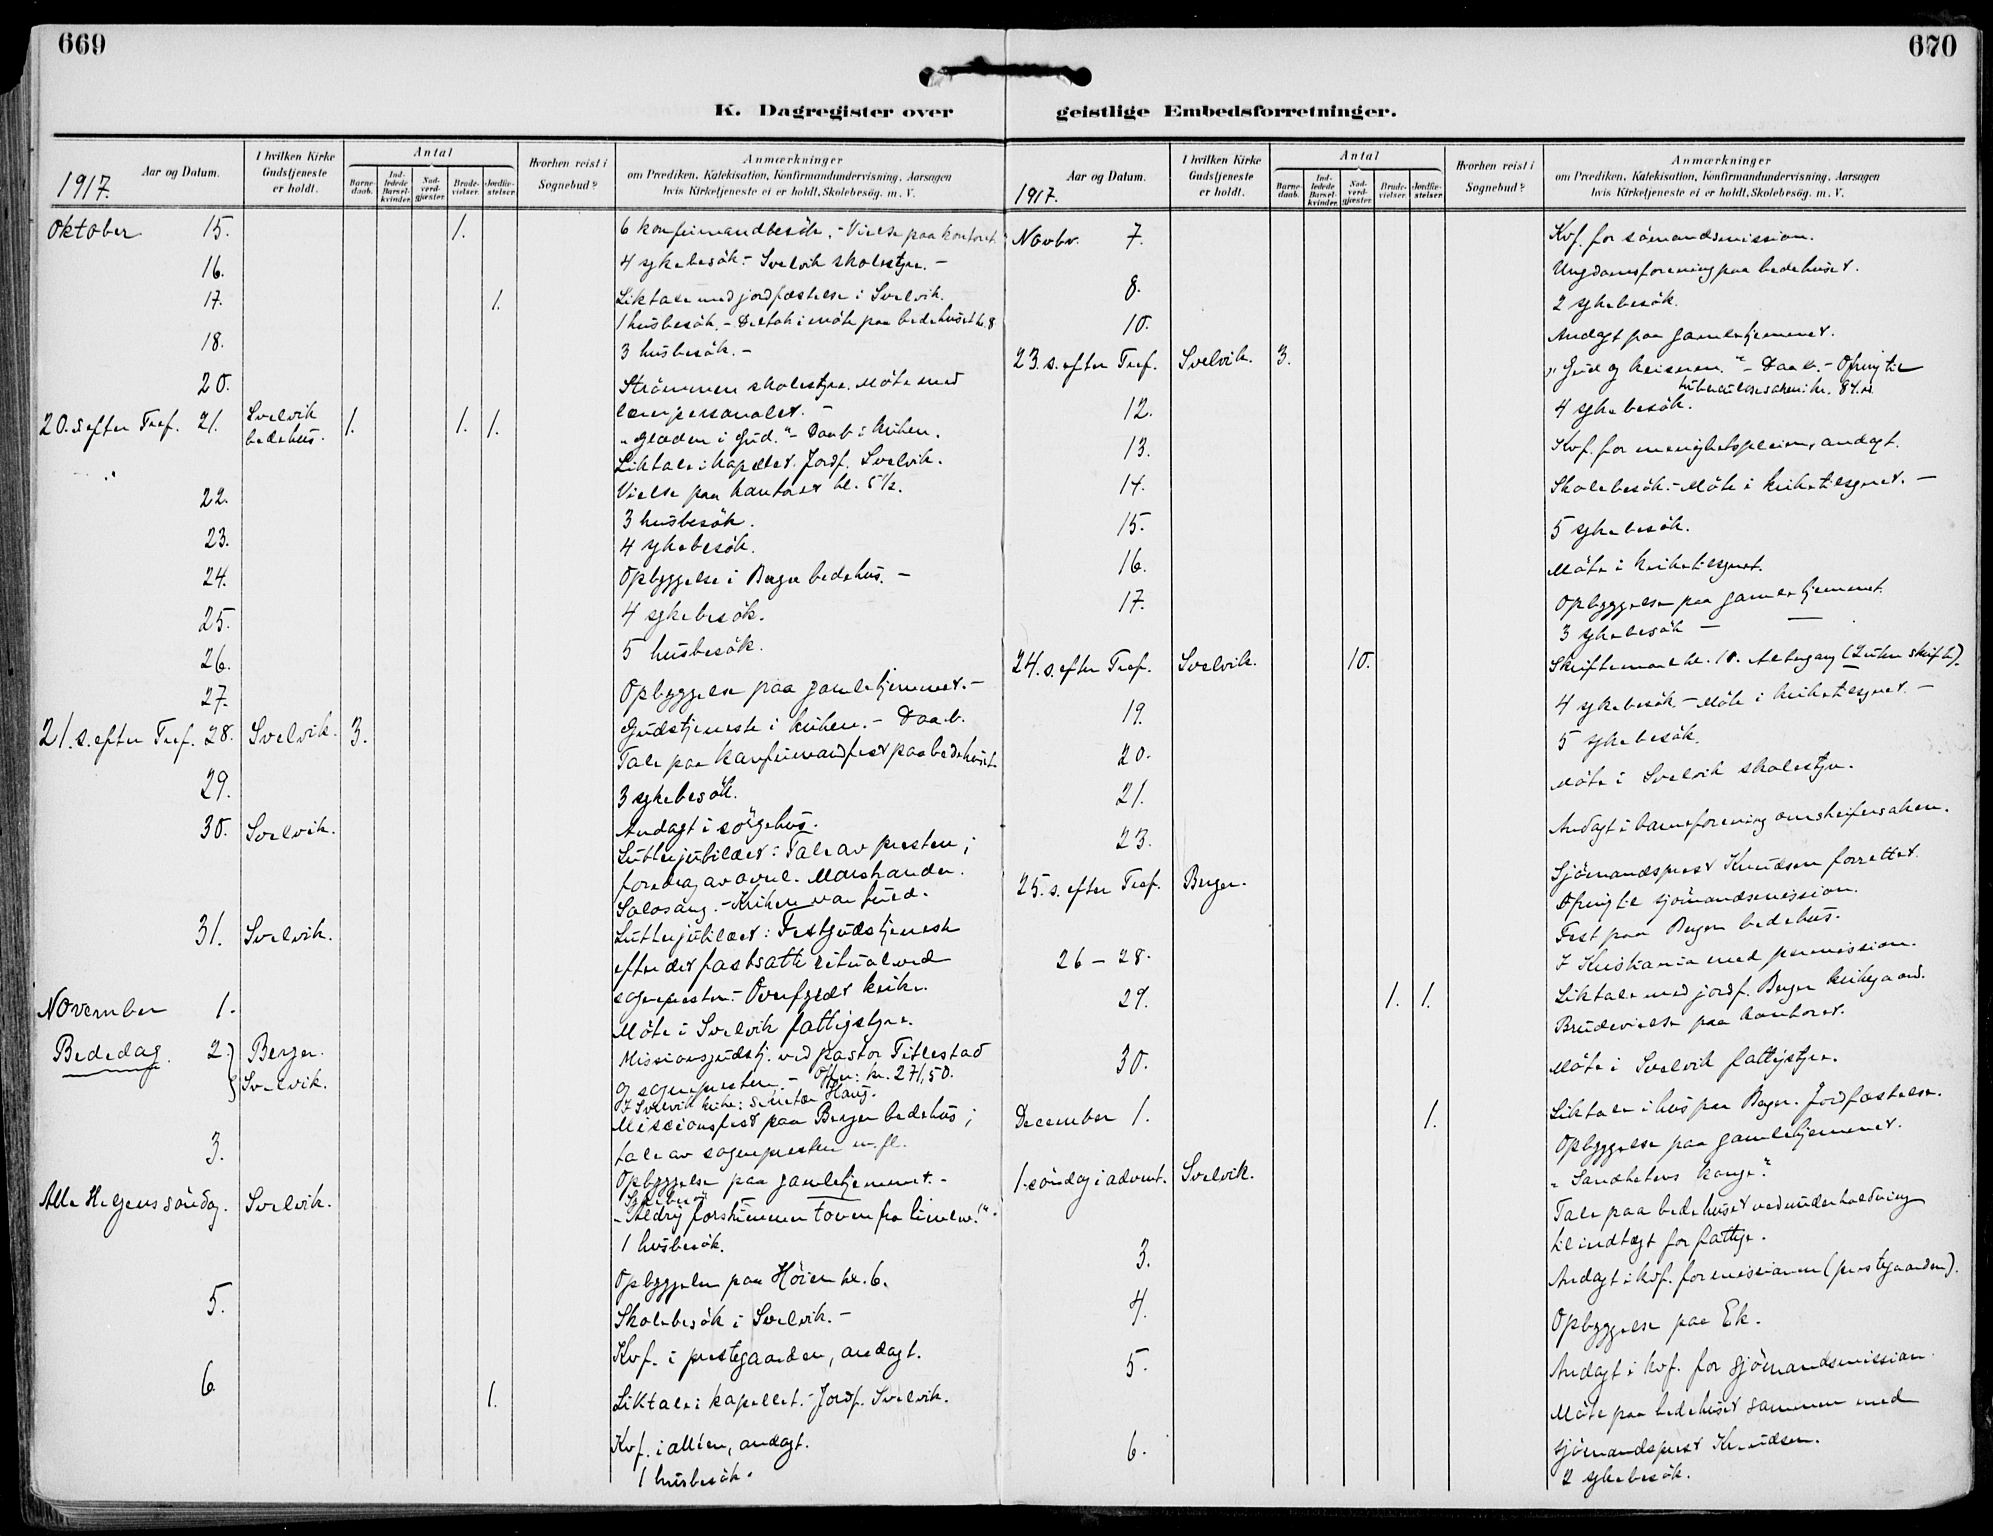 669
K. Dagregister over
1917.
Aar og Datum.
I hvilken Kirke Gudstjeneste er holdt.
Antal
Barne-daab.
Ind-ledede Barsel-kvinder.
Nad-verd-gjæster.
Brude-vielser.
Jordfæ-stelser.
Hvorhen reist i Sognebud?
Anmærkninger
om Prædiken, Katekisation, Konfirmandundervisning, Aarsagen
hvis Kirketjeneste ei er holdt, Skolebesøg. m. V.
Oktober 15. 1. 6 konfirmandbesök. - Vielse paa kontoret.
16. 4 sykebesök. - Svelvik skolestyre. -
17. 1. Liktale med jordfæstelse i Svelvik.
1 husbesök. - Deltok i möte paa bedehuset kl. 8
18. 3 husbesök. -
20. Strömmen skolestyre. Möte med
lærerpersonalet. -
20. s. efter Tref. 21. Svelvik bedehus. 1. 1. 1. "Glæden i Gud." - Daab i kirken.
Liktale i kapellet. Jordf. Svelvik.
Vielse paa kontoret kl. 5 1/2.
22. 3 husbesök.
23. 4 sykebesök.
24. Opbyggelse i Berger bedehus. -
25. 4 sykebesök.
26. 5 husbesök.
27. Opbyggelse paa gamlehjemmet. -
21. s. efter Tref. 28. Svelvik. 3. Gudstjeneste i kirken. - Daab.
Tale paa konfirmandfest paa bedehuset.
29. 3 sykebesök.
30. Svelvik. Andagt i sörgehus.
Lutherjubilæet: Tale av presten;
foredrag av overl. Marstrander.
Solosang. - Kirken var fuld.
31. Svelvik. Lutherjubilæet: Festgudstjeneste
efter det fastsatte ritual ved
sognepresten. - Overfyldt kirke.
November 1. Möte i Svelvik fattigstyre.
Bededag. 2. Berger. Missionsgudstj. ved pastor Titlestad
Svelvik. og sognepresten. - Offer: kr. 271,50.
I Svelvik kirke: sekretær Haug.
Missionsfest paa Berger bedehus;
3. tale av sognepresten m. fl.
Opbyggelse paa gamlehjemmet. -
Alle Helgens söndag. Svelvik. "Aldrig forstummer tonen fra himlen!"
1 husbesök.
Opbyggelse paa Höien kl. 6.
5. Skolebesök i Svelvik. -
Kvf. i prestegaarden, andagt.
6 1. Liktale i kapellet. - Jordf. Svelvik.
Kvf. i alléen, andagt.
1 husbesök.
670
geistlige Embedsforretninger.
1917.
Aar og Datum.
I hvilken Kirke Gudstjeneste er holdt.
Antal
Barne-daab.
Ind-ledede Barsel-kvinder.
Nad-verd-gjæster.
Brude-vielser.
Jordfæ-stelser.
Hvorhen reist i Sognebud?
Anmærkninger
om Prædiken, Katekisation, Konfirmandundervisning, Aarsagen
hvis Kirketjeneste ei er holdt, Skolebesøg. m. V.
Novbr. 7. Kvf. for sömandsmission.
Ungdomsforening paa bedehuset.
8. 2 sykebesök.
10. Andagt paa gamlehjemmet.
23. s. efter Tref. Svelvik. 3. "Gud og keiseren." - Daab. - Ofring til
tuberkulosesaken: kr. 84.
12. 4 sykebesök.
13. Kvf. for menighetspleien, andagt.
14. Skolebesök. - Möte i kirketilsynet. -
15. 5 sykebesök.
16. Möte i kirketilsynet.
17. Opbyggelse paa gamlehjemmet.
3 sykebesök -
24. s. efter Tref. Svelvik. 10. Skriftemaal kl. 10. Altergang (2 uten skrifte).
19. 4 sykebesök. - Möte i kirketilsynet. -
20. 5 sykebesök.
21. Möte i Svelvik skolestyre.
23. Andagt i barneforening
25. s. efter Tref. Berger. Sjömandsprest Knudsen forrettet.
Ofring til sjömandsmission.
Fest paa Berger bedehus.
26 - 28. I Kristiania med permission.
29. 1. 1. Liktale med jordf. Berger kirkegaard.
Brudevielse paa kontoret.
30. Möte i Svelvik fattigstyre.
December 1. 1. Liktale i hus paa Berger. Jordfæstelse.
Opbyggelse paa gamlehjemmet.
1. söndag i advent. Svelvik. "Sandhetens konge."
Tale paa bedehuset ved underholdning
til indtægt for fattige.
3. Andagt i kvf. for missionen (prestegaarden).
4. Opbyggelse paa Ek.
5. Andagt i kvf. for sjömandsmission.
Möte paa bedehuset sammen med
6. sjömandsprest Knudsen.
2 sykebesök.